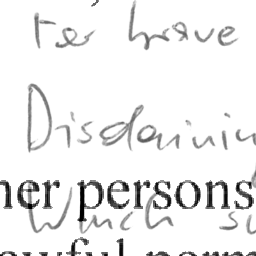 for brave
Disdaining
her persons
Which s
lawful perm